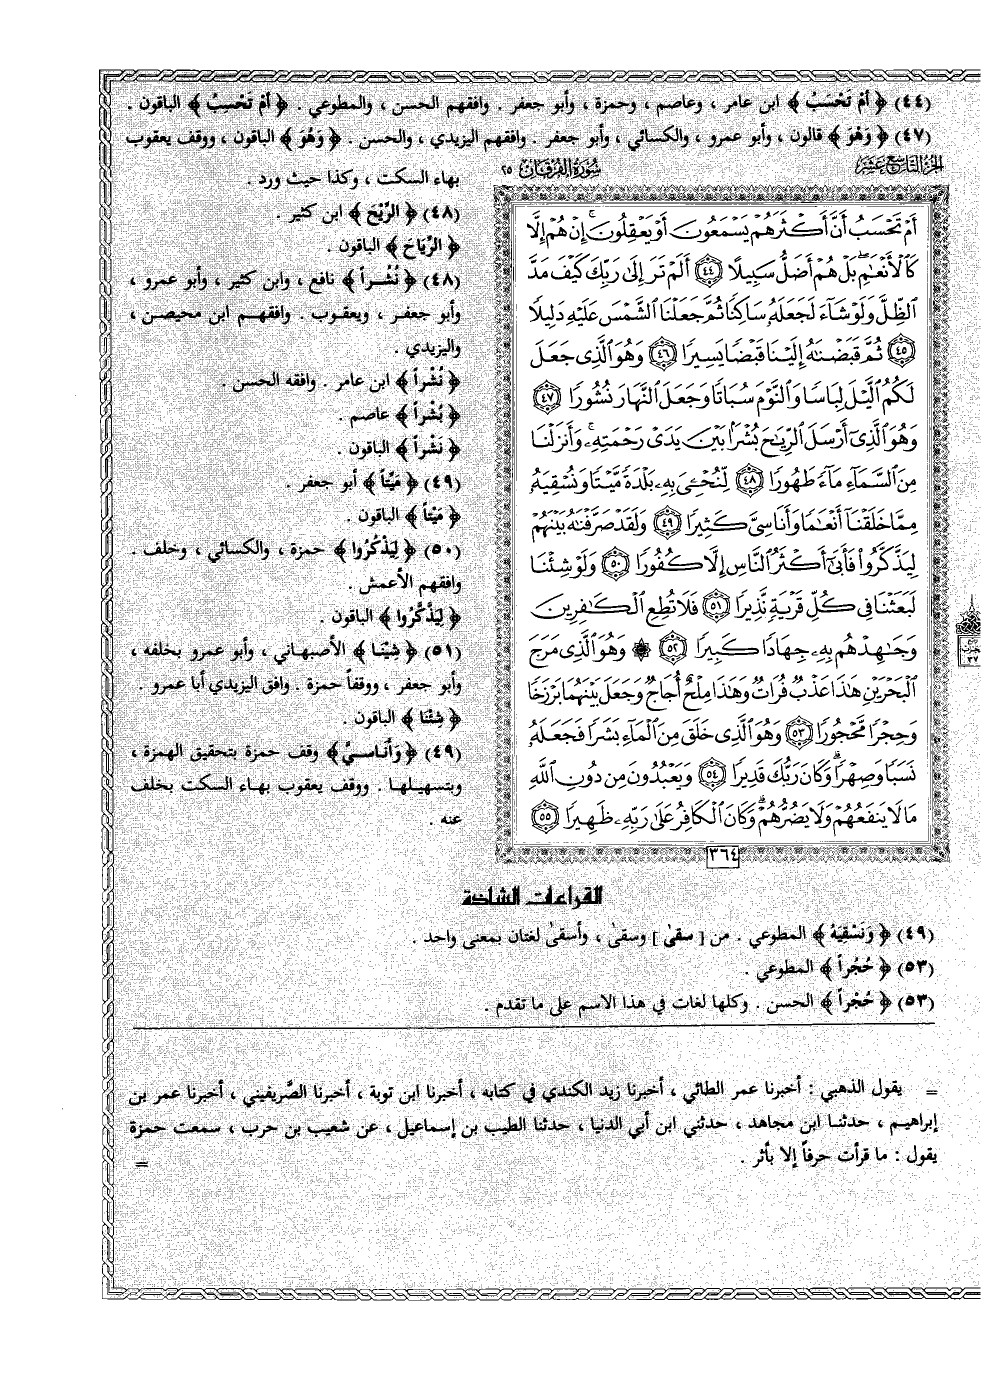 (٤٤) ﴿ أَمْ تَحْسَبُ ﴾ ابن عامر ، وعاصم ، وحمزة ، وأبو جعفر . وافقهم الحسن ، والمطوعي . ﴿ أَمْ تَحْسِبُ ﴾ الباقون .
(٤٧) ﴿ وَهْوَ ﴾ قالون ، وأبو عمرو ، والكسائي ، وأبو جعفر . وافقهم اليزيدي ، والحسن . ﴿ وَهُوَ ﴾ الباقون ، ووقف يعقوب
الجزء التاسع عشر
سورة الفرقان ٢٥
بهاء السكت ، وكذا حيث ورد .
(٤٨) ﴿ الرِّيْحَ ﴾ ابن كثير .
﴿ الرِّيَاحَ ﴾ الباقون .
(٤٨) ﴿ نُشُراً ﴾ نافع ، وابن كثير ، وأبو عمرو ،
وأبو جعفر ، ويعقوب . وافقهم ابن محيصن ،
واليزيدي .
﴿ نُشْراً ﴾ ابن عامر . وافقه الحسن .
﴿ بُشْراً ﴾ عاصم .
﴿ نَشْراً ﴾ الباقون .
(٤٩) ﴿ مَيِّتاً ﴾ أبو جعفر .
﴿ مَيْتاً ﴾ الباقون .
(٥٠) ﴿ لِيَذْكُرُوا ﴾ حمزة ، والكسائي ، وخلف .
وافقهم الأعمش .
﴿ لِيَذَّكَّرُوا ﴾ الباقون .
(٥١) ﴿ شِيْنَا ﴾ الأصبهاني ، وأبو عمرو بخلفه ،
وأبو جعفر ، ووقفاً حمزة . وافق اليزيدي أبا عمرو .
﴿ شِئْنَا ﴾ الباقون .
(٤٩) ﴿ وَأَنَاسيَّ ﴾ وقف حمزة بتحقيق الهمزة ،
وبتسهيلها . ووقف يعقوب بهاء السكت بخلف
عنه .
أَمْ تَحْسَبُ أَنَّ أَكْثَرَهُمْ يَسْمَعُونَ أَوْ يَعْقِلُونَ إِنْ هُمْ إِلَّا
كَالْأَنْعَٰمِ بَلْ هُمْ أَضَلُّ سَبِيلًا ٤٤ أَلَمْ تَرَ إِلَىٰ رَبِّكَ كَيْفَ مَدَّ
الظِّلَّ وَلَوْ شَآءَ لَجَعَلَهُۥ سَاكِنًا ثُمَّ جَعَلْنَا الشَّمْسَ عَلَيْهِ دَلِيلًا
٤٥ ثُمَّ قَبَضْنَٰهُ إِلَيْنَا قَبْضًا يَسِيرًا ٤٦ وَهُوَ الَّذِى جَعَلَ
لَكُمُ الَّيْلَ لِبَاسًا وَالنَّوْمَ سُبَاتًا وَجَعَلَ النَّهَارَ نُشُورًا ٤٧
وَهُوَ الَّذِىٓ أَرْسَلَ الرِّيَٰحَ بُشْرًۢا بَيْنَ يَدَىْ رَحْمَتِهِۦ وَأَنزَلْنَا
مِنَ السَّمَآءِ مَآءً طَهُورًا ٤٨ لِّنُحْـِۧىَ بِهِۦ بَلْدَةً مَّيْتًا وَنُسْقِيَهُۥ
مِمَّا خَلَقْنَآ أَنْعَٰمًا وَأَنَاسِىَّ كَثِيرًا ٤٩ وَلَقَدْ صَرَّفْنَٰهُ بَيْنَهُمْ
لِيَذَّكَّرُوا۟ فَأَبَىٰٓ أَكْثَرُ النَّاسِ إِلَّا كُفُورًا ٥٠ وَلَوْ شِئْنَا
لَبَعَثْنَا فِى كُلِّ قَرْيَةٍ نَّذِيرًا ٥١ فَلَا تُطِعِ الْكَٰفِرِينَ
وَجَٰهِدْهُم بِهِۦ جِهَادًا كَبِيرًا ٥٢ ۞ وَهُوَ الَّذِى مَرَجَ
الْبَحْرَيْنِ هَٰذَا عَذْبٌ فُرَاتٌ وَهَٰذَا مِلْحٌ أُجَاجٌ وَجَعَلَ بَيْنَهُمَا بَرْزَخًا
وَحِجْرًا مَّحْجُورًا ٥٣ وَهُوَ الَّذِى خَلَقَ مِنَ الْمَآءِ بَشَرًا فَجَعَلَهُۥ
نَسَبًا وَصِهْرًا وَكَانَ رَبُّكَ قَدِيرًا ٥٤ وَيَعْبُدُونَ مِن دُونِ اللَّهِ
مَا لَا يَنفَعُهُمْ وَلَا يَضُرُّهُمْ وَكَانَ الْكَافِرُ عَلَىٰ رَبِّهِۦ ظَهِيرًا ٥٥
٣٦٤
القراءات الشاذة
(٤٩) ﴿ وَنَسْقِيَهُ ﴾ المطوعي . من [ سقىٰ ] وسقىٰ ، وأسقىٰ لغتان بمعنى واحد .
(٥٣) ﴿ حُجُراً ﴾ المطوعي .
(٥٣) ﴿ حُجْراً ﴾ الحسن . وكلها لغات في هذا الاسم على ما تقدم .
= يقول الذهبي : أخبرنا عمر الطائي ، أخبرنا زيد الكندي في كتابه ، أخبرنا ابن توبة ، أخبرنا الصَّريفيني ، أخبرنا عمر بن
إبراهيم ، حدثنا ابن مجاهد ، حدثني ابن أبي الدنيا ، حدثنا الطيب بن إسماعيل ، عن شعيب بن حرب ، سمعت حمزة
يقول : ما قرأت حرفاً إلا بأثر . =